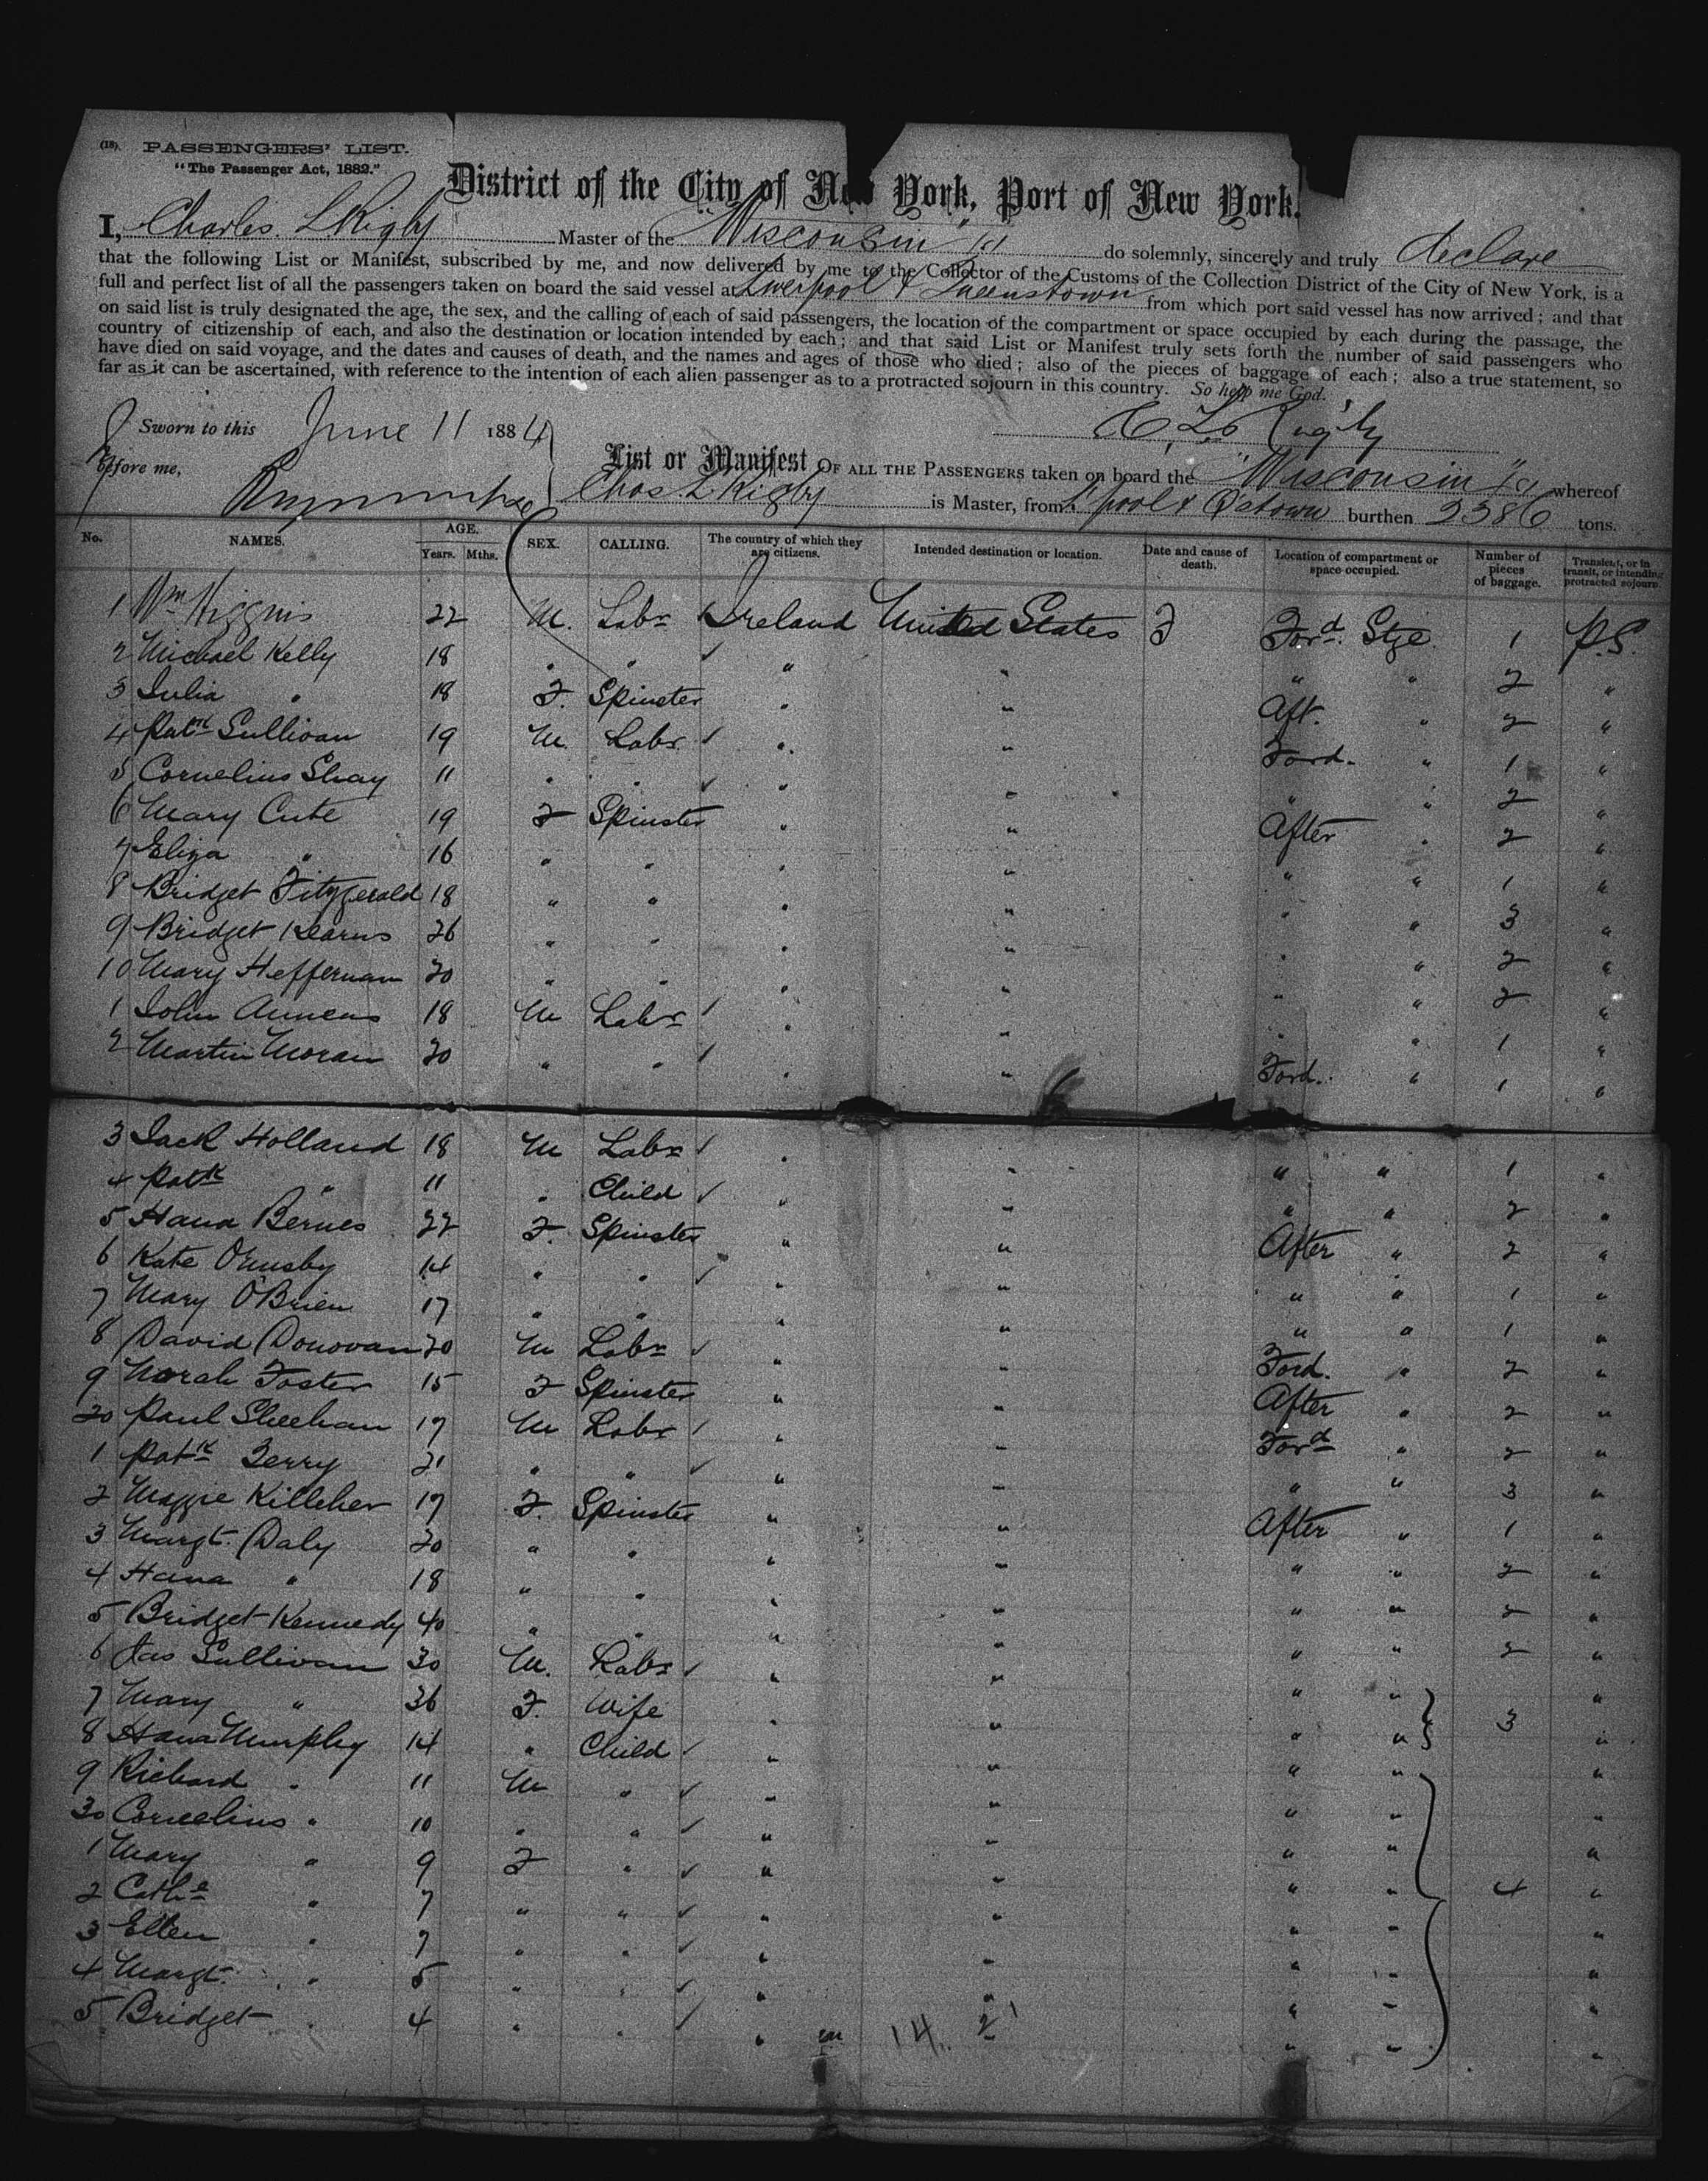 (18). PASSENGERS' LIST.
"The Passenger Act, 1882."
District of the City of New York, Port of New York.
I, Charles. L Rigby Master of the "Wisconsin" do solemnly, sincerely and truly declare
that the following List or Manifest, subscribed by me, and now delivered by me to the Collector of the Customs of the Collection District of the City of New York, is a
full and perfect list of all the passengers taken on board the said vessel at Liverpool & Queenstown from which port said vessel has now arrived; and that
on said list is truly designated the age, the sex, and the calling of each of said passengers, the location of the compartment or space occupied by each during the passage, the
country of citizenship of each, and also the destination or location intended by each; and that said List or Manifest truly sets forth the number of said passengers who
have died on said voyage, and the dates and causes of death, and the names and ages of those who died; also of the pieces of baggage of each; also a true statement, so
far as it can be ascertained, with reference to the intention of each alien passenger as to a protracted sojourn in this country. So help me God.
Sworn to this June 11 1884 C. L. Rigby
before me,
List or Manifest OF ALL THE PASSENGERS taken on board the "Wisconsin" whereof
Chas. L Rigby is Master, from L'pool & Q'town burthen 2386 tons.
No. NAMES. AGE. Years. Mths. SEX. CALLING. The country of which they are citizens. Intended destination or location. Date and cause of death. Location of compartment or space occupied. Number of pieces of baggage. Transient, or in transit, or intending protracted sojourn.
1 Wm Higgins 22 M. Labr Ireland United States Ford. Stge. 1 P.S.
2 Michael Kelly 18 " " ✓ " " " " 2 "
3 Julia " 18 F. Spinster " " Aft. " 2 "
4 Patk Sullivan 19 M. Labr ✓ " " Ford. " 1 "
5 Cornelius Shay 11 " " ✓ " " " " 2 "
6 Mary Cute 19 F Spinster " " After " 2 "
7 Eliza " 16 " " " " " " 1 "
8 Bridget Fitzgerald 18 " " " " " " 3 "
9 Bridget Kearns 26 " " " " " " 2 "
10 Mary Heffernan 20 " " " " " " 2 "
1 John 18 M Labr ✓ " " " " 1 "
2 Martin Moran 20 " " ✓ " " Ford. " 1 "
3 Jack Holland 18 M Labr ✓ " " " " 1 "
4 Patk " 11 " Child ✓ " " " " 2 "
5 Hana Bernes 22 F. Spinster " " After " 2 "
6 Kate Ormsby 14 " " ✓ " " " " 1 "
7 Mary O'Brien 17 " " " " " " 1 "
8 David Donovan 20 M Labr ✓ " " Ford. " 2 "
9 Norah Foster 15 F Spinster " " After " 2 "
20 Paul Sheehan 17 M Labr ✓ " " Ford " 2 "
1 Patk Terry 21 " " ✓ " " " " 3 "
2 Maggie Killeher 17 F. Spinster " " After " 1 "
3 Margt. Daly 20 " " " " " " 2 "
4 Hana " 18 " " " " " " 2 "
5 Bridget Kennedy 40 " " " " " " 2 "
6 Jas Sullivan 30 M. Labr ✓ " " " " "
7 Mary " 36 F. Wife " " " " 3 "
8 Hana Murphy 14 " Child ✓ " " " " "
9 Richard " 11 M " ✓ " " " " "
30 Cornelius " 10 " " ✓ " " " " "
1 Mary " 9 F " ✓ " " " " 4 "
2 Cathe " 7 " " ✓ " " " " "
3 Ellen " 7 " " ✓ " " " " "
4 Margt. " 5 " " ✓ " " " " "
5 Bridget " 4 " " ✓ " " " " "
14.